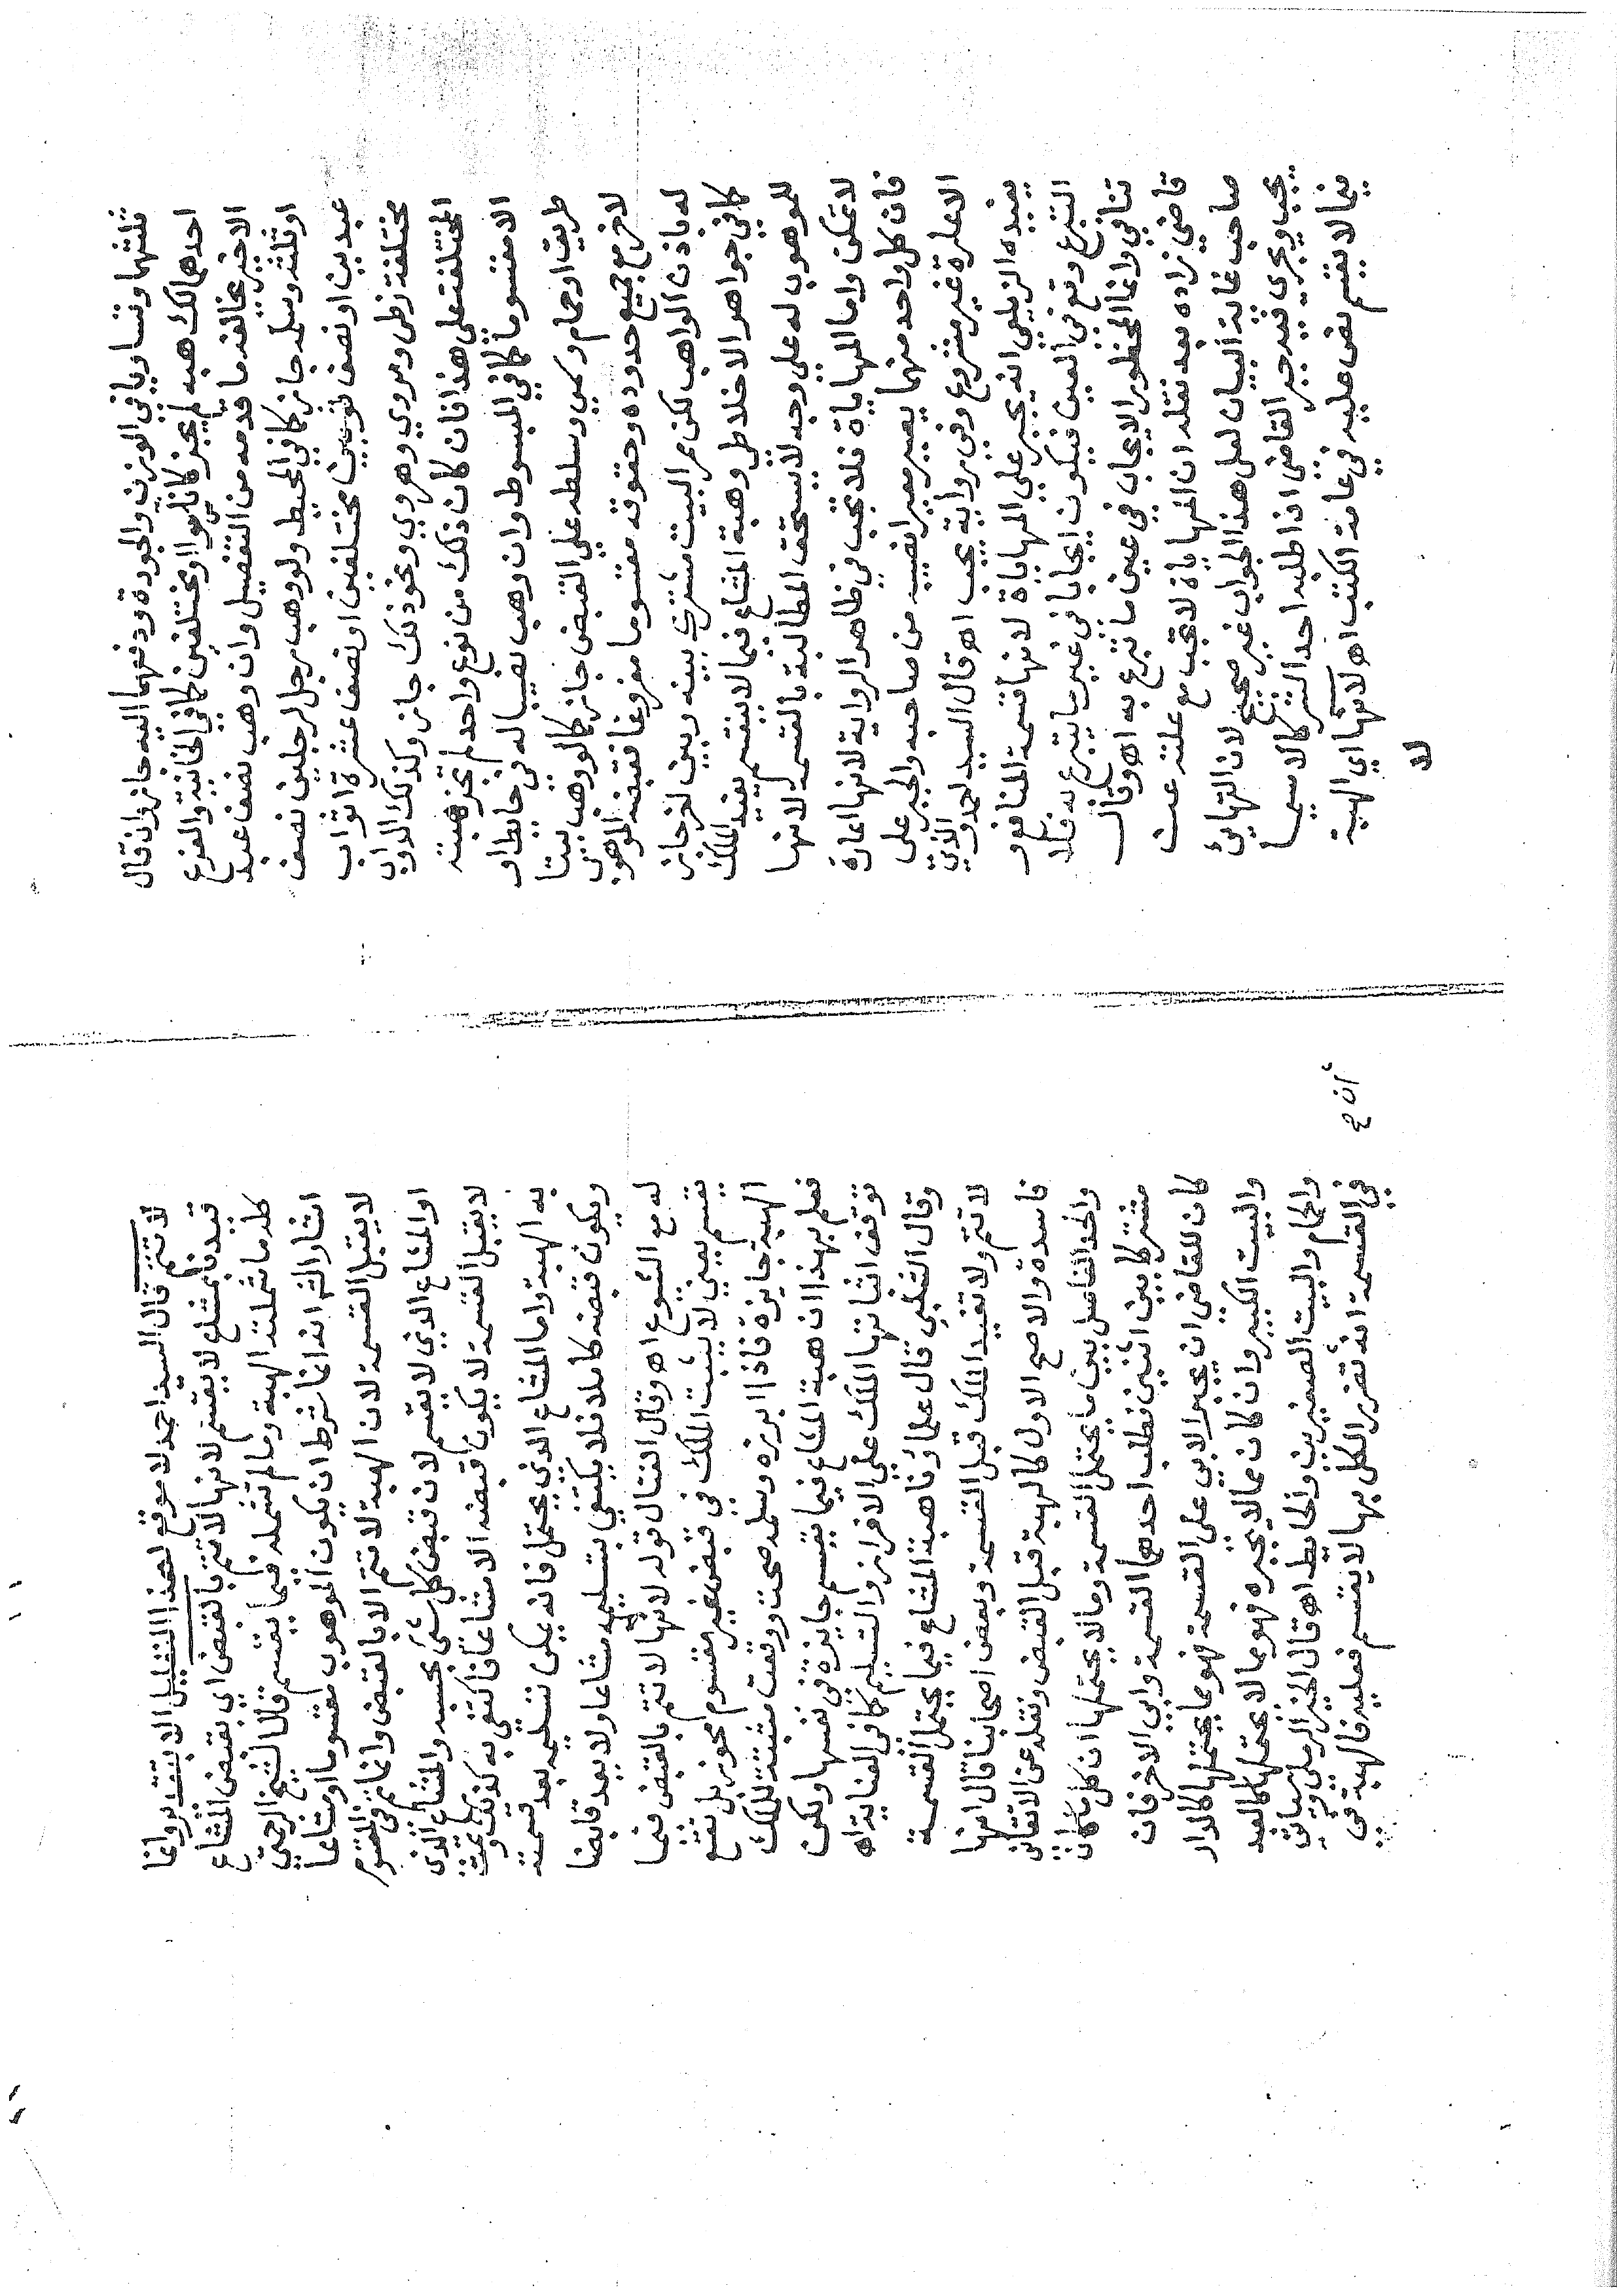 ثلثها وتساويا في الوزن والجودة ودفعهما اليه جاز وان قال
احدهما لك هبه لم يجز كانا سوا او مختلفين كما في الخانية والفرع
الاخير يخالفه ما قدمه من التفصيل وان وهب نصف عبد
او ثلثه وسلمه جاز كما في المحيط ولو وهب رجل لرجلين نصف
عبدين او نصف ثوبين مختلفين او نصف عشرة اثواب
مختلفة زطي ومروي وهروي ونحو ذلك جاز وكذلك الدواب
المختلفة على هذا فان كان ذلك من نوع واحد لم تجز هبته
الا مقسوما كما في المبسوط وان وهب نصيبا له في حايط او
طريق او حمام وسمي وسلطه على القبض جاز كما لو وهب بيتا
لاخر مع جميع حدوده وحقوقه مقسوما مفروغا فقبضه الموهوب
له باذن الواهب لكن ممر البيت مشترك بينه وبين اخر جاز
كما في جواهر الاخلاطي وهبة المشاع فيما لا يقسم يفيد الملك
للموهوب له على وجه لا يستحق المطالبة بالقسمة لانها
لا تمكن واما المهاياة فلا تجب في ظاهر الرواية لانها اعارة
فان كل واحد منهما يصير معيرا نصيبه من صاحبه والجبر على
الاعارة غير مشروع وفي رواية يجب اهـ قال السيد الحموي الذي
يفيده الزيلعي انه يجبر على المهاياة لانها قسمة المنافع و
التبرع وقع في العين فيكون ايجابا في غير ما يتبرع به فلا
تنافي وانما المحظور الايجاب في عين ما تبرع به اهـ وقال
قاضي زاده بعد نقله ان المهاياة لا تجب مع علته عن
صاحب غاية البيان لعل هذا الجواب غير صحيح لان التهايئ
يجب ويجرى فيه جبر القاضي اذا طلبه احد الشركا لا سيما
فيما لا يقسم نص عليه في عامة الكتب اهـ لانها اي الهبة
لا
لا تتم قال السيد احمد لا موقع لهذا التعليل الا بتقدير وانما
قيدنا بمشاع لا يقسم لانها لا تتم بالقبض اي بقبض المشاع
كله ما شملته الهبة وما لم تشمله فيما يقسم قال الشيخ الرحمتي
اشار الشه انه انما شرط ان يكون الموهوب مقسوما او مشاعا
لا يقبل القسمة لان الهبة لا تتم الا بالقبض وانما يتم في المقسوم
او المشاع الذي لا يقسم لان قبض كل شئ بحسبه والمشاع الذي
لا يقبل القسمة لا يكون قبضه الا مشاعا فاكتفي به كذلك وتمت
به الهبة واما المشاع الذي يحتمل فانه يمكن تسليمه بعد قسمة
ويكون قبضه كاملا فلا يكتفي بتسليمه مشاعا ولا يعد قابضا
له مع الشيوع اهـ وقال الفتال قوله لانها لا تتم بالقبض فيما
يقسم يعني لا يثبت الملك في قبض غير مقسوم محوز بل تقع
الهبة جايزة فاذا ابرزه وسلمه صحت ووقعت مثبتة للملك
فعلم بهذا ان هبة المشاع فيما يقسم جايزة في نفسها ولكن
توقف اثباتها الملك على الافراز والتسليم كما في العناية اهـ
وقال الشلبي قال علماؤنا هبة المشاع فيما يحتمل القسمة
لا تتم ولا تفيد الملك قبل القسمة وبعض اصحابنا قال انها
فاسدة والاصح الاول كالهبة قبل القبض ونقله عن الاتقاني
والحد الفاصل بين ما يحتمل القسمة وما لا يحتملها ان كل ما كان
مشتركا بين اثنين فطلب احدهما القسمة وابي الاخر فان
كان للقاضي ان يجبر الابي على القسمة فهو مما يحتملها كالدار
والبيت الكبير وان كان مما لا يجبره فهو مما لا يحتملها كالعبد
والحمام والبيت الصغيرين والحايط اهـ قال الخير الرملي وسياتي
في القسمة انه تضرر الكل بها لا يقسم فعليه فالهبة في
ان صح